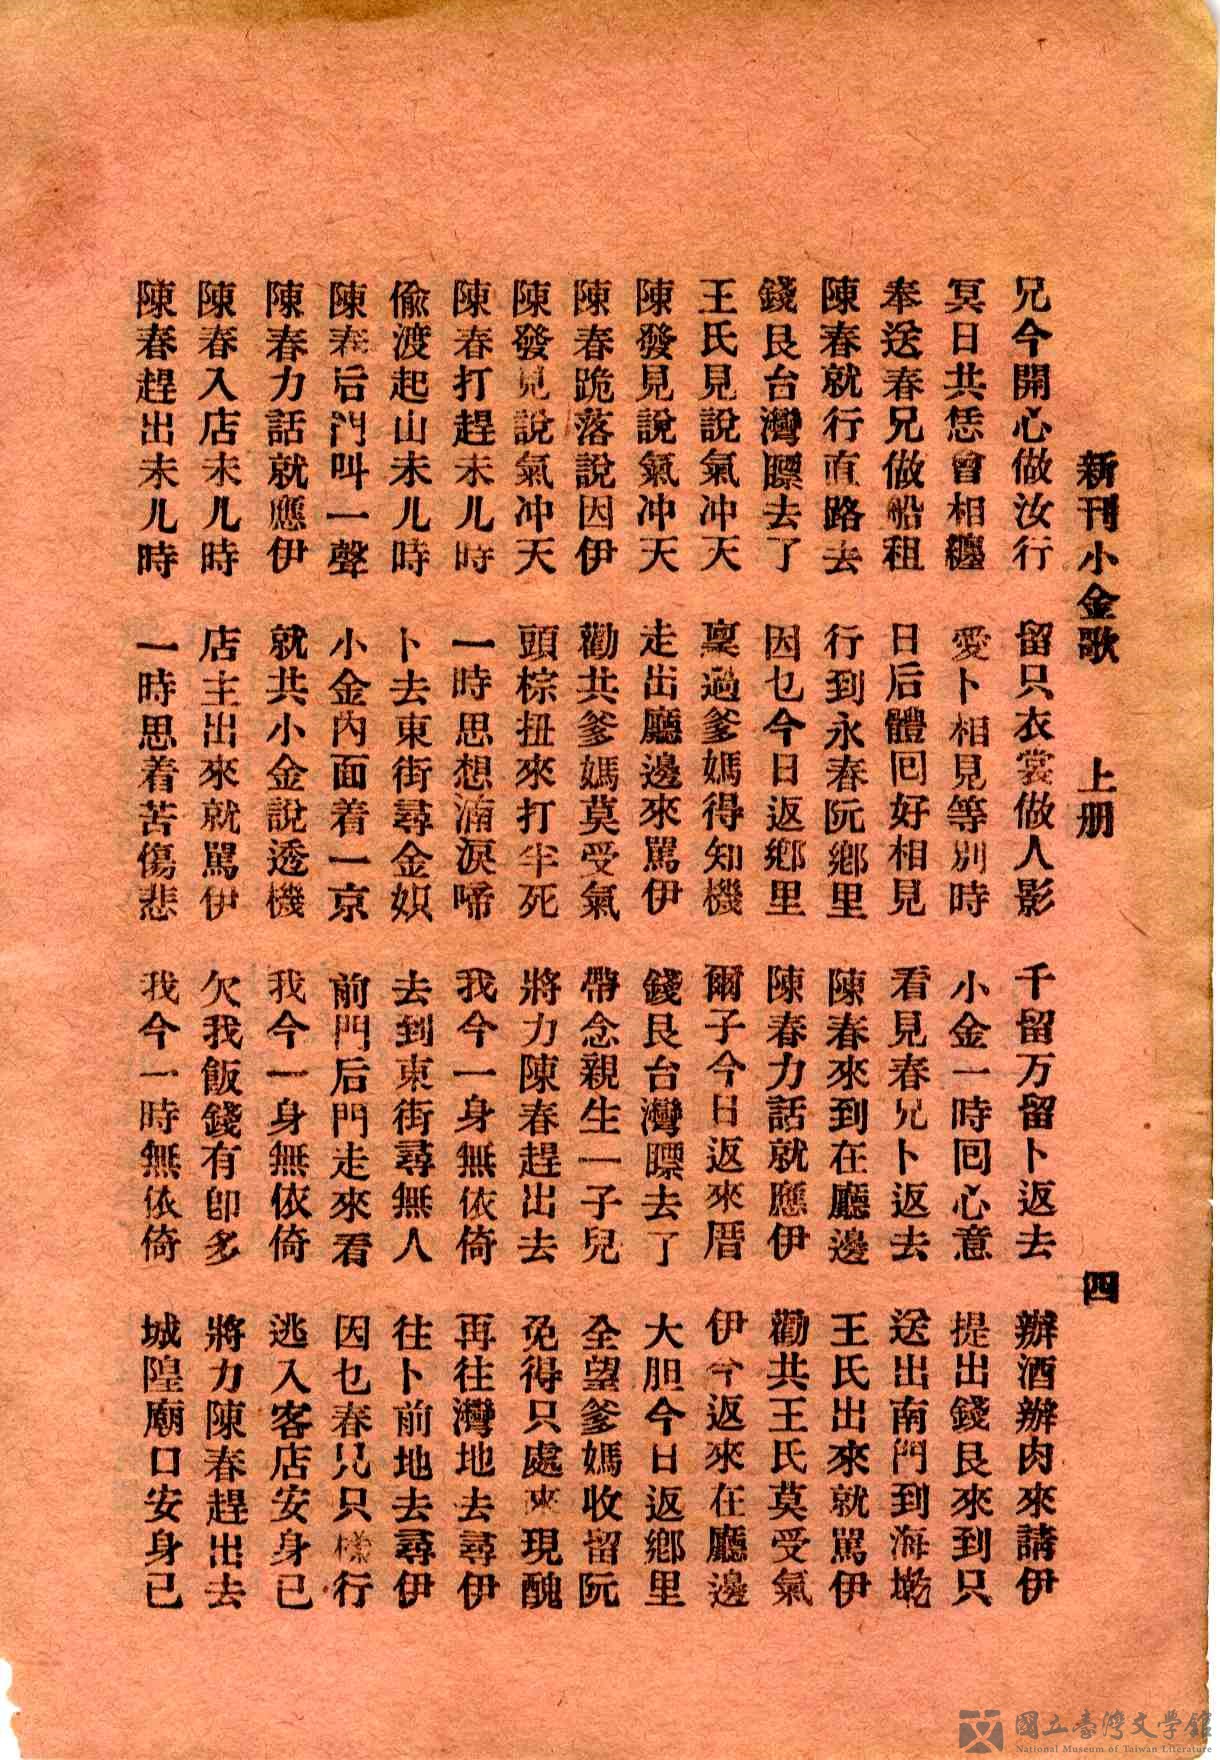 新刊小金歌 上册 四
兄今開心做汝行 留只衣裳做人影 千留万留卜返去 辦酒辦肉來請伊
冥日共恁曾相纏 愛卜相見等別時 小金一時回心意 提出錢艮來到只
奉送春兄做船租 日后體回好相見 看見春兄卜返去 送出南門到海墘
陳春就行直路去 行到永春阮鄉里 陳春來到在廳邊 王氏出來就罵伊
錢艮台灣瞟去了 因乜今日返鄉里 陳春力話就應伊 勸共王氏莫受氣
王氏見說氣冲天 稟過爹媽得知機 爾子今日返來厝 伊今返來在廳邊
陳發見說氣冲天 走出廳邊來罵伊 錢艮台灣瞟去了 大胆今日返鄉里
陳春跪落說因伊 勸共爹媽莫受氣 帶念親生一子兒 全望爹媽收留阮
陳發見說氣冲天 頭棕扭來打半死 將力陳春趕出去 免得只處來現醜
陳春打趕未儿時 一時思想湳淚啼 我今一身無依倚 再往灣地去尋伊
偸渡起山未儿時 卜去東街尋金娯 去到東街尋無人 往卜前地去尋伊
陳春后門叫一聲 小金內面着一京 前門后門走來看 因乜春兄只樣行
陳春力話就應伊 就共小金說透機 我今一身無依倚 逃入客店安身已
陳春入店未儿時 店主出來就罵伊 欠我飯錢有卽多 將力陳春趕出去
陳春趕出未儿時 一時思着苦傷悲 我今一時無依倚 城隍廟口安身已
國立臺灣文學館
National Museum of Taiwan Literature